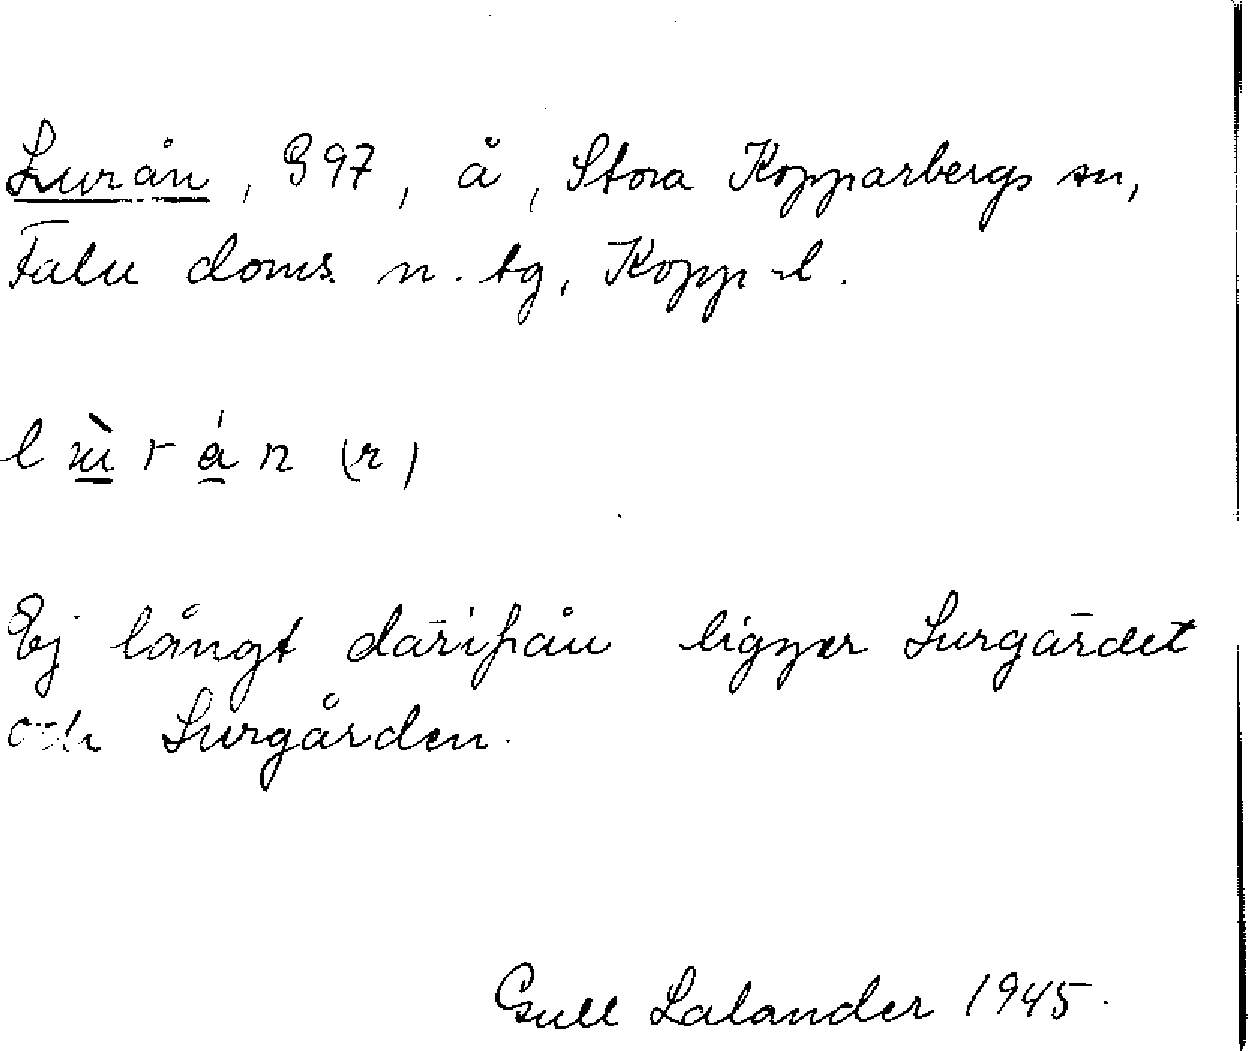 Lurån, G 97, å, Stora Kopparbergs sn,
Falu doms. n. tg, Kopp l.
l ù r á n (r)
Ej långt därifrån ligger Lurgärdet
och Lurgården.
Gull Lalander 1945.